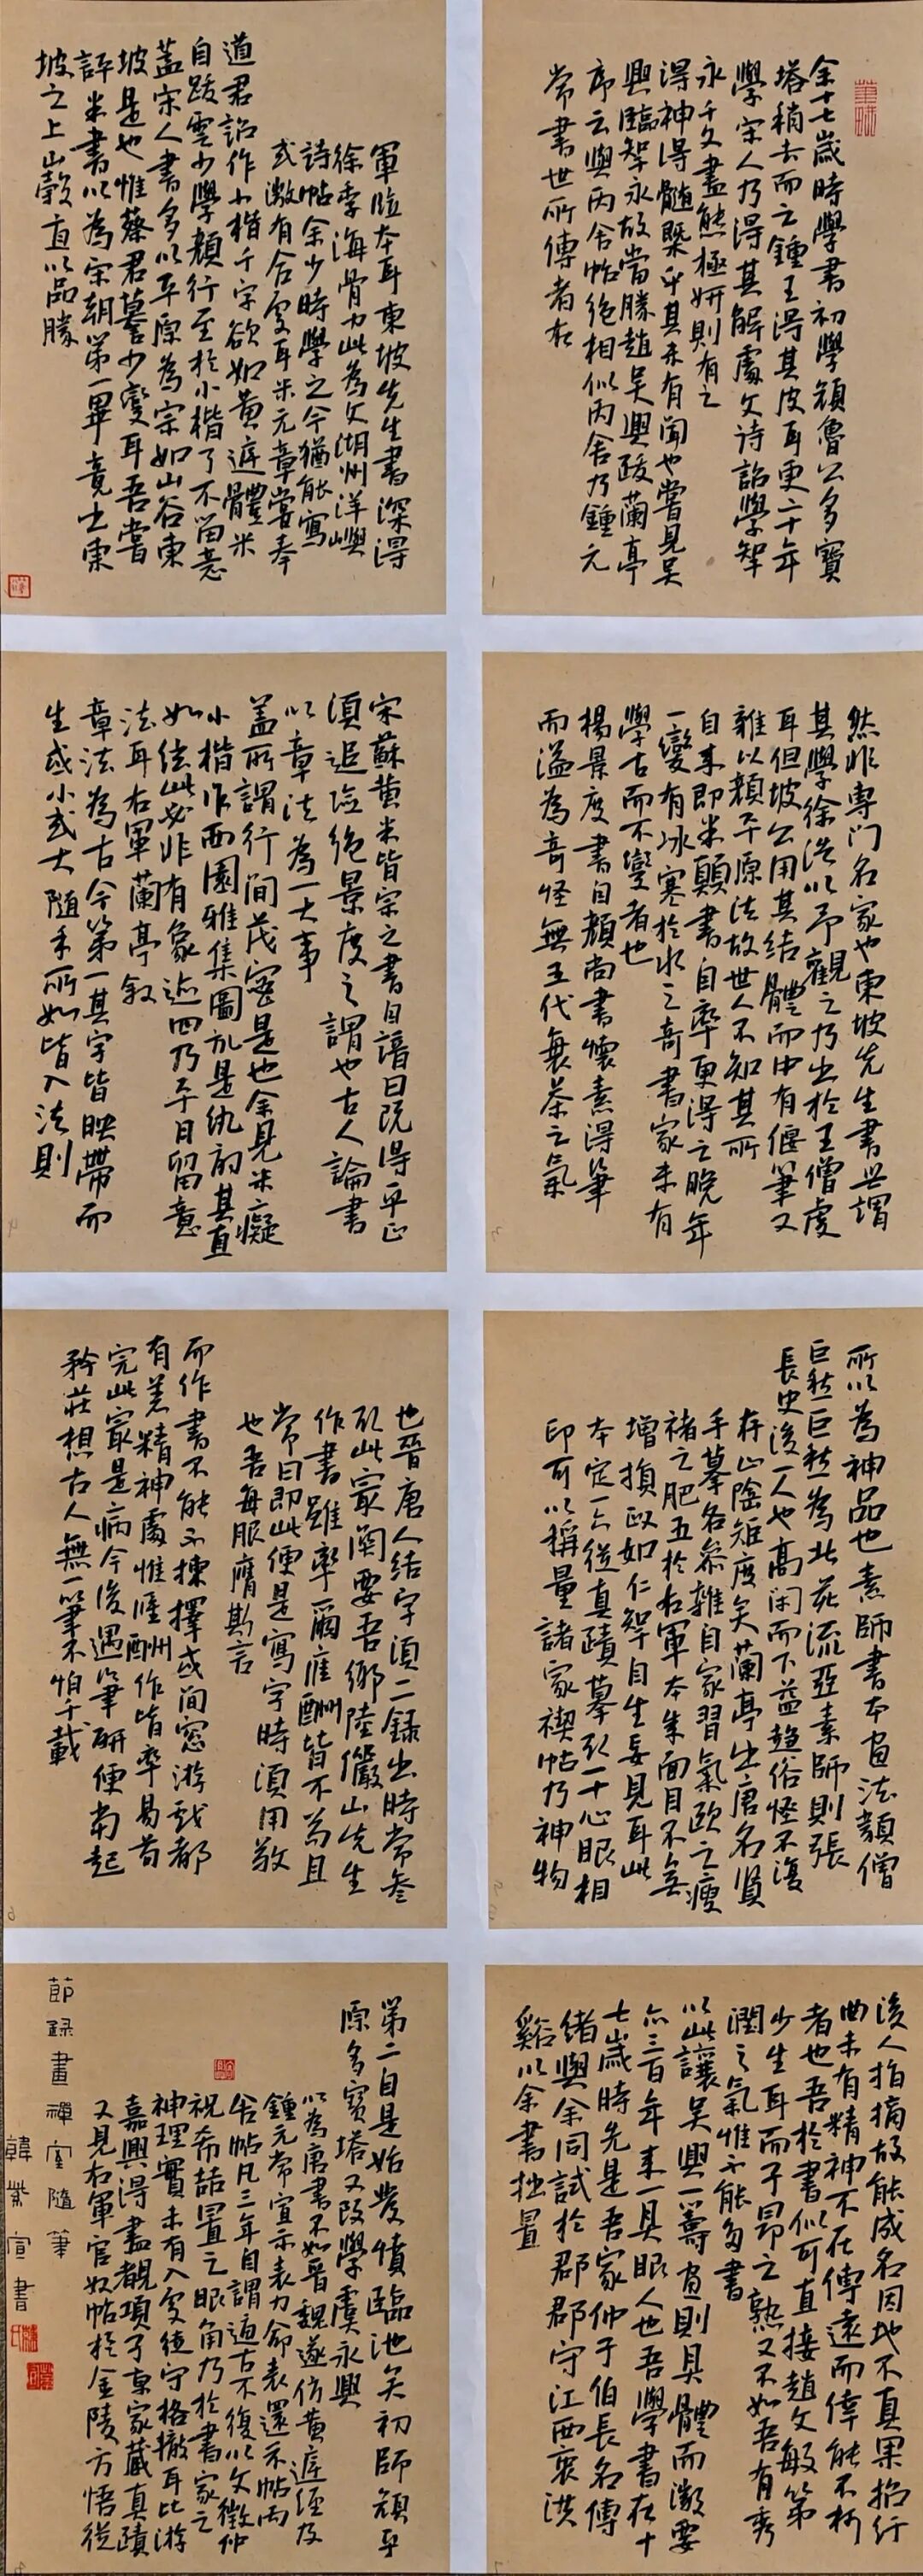 余十七歲時學書初學顏魯公多寶
塔稍去而之鍾王得其皮耳更二十年
學宋人乃得其解處文詩詔學智
永千文盡態極妍則有之
得神得髓槩乎其未有聞也嘗見吳
興臨智永故當勝趙吳興跋蘭亭
序云與丙舍帖絕相似丙舍乃鍾元
常書世所傳者右
軍臨本耳東坡先生書深得
徐季海骨力此為文湖州洋嶼
詩帖余少時學之今猶能寫
或微有合處耳米元章嘗奉
道君詔作小楷千字欲如黃庭體米
自跋云少學顏行至於小楷了不留意
蓋宋人書多以平原為宗如山谷東
坡是也惟蔡君謨少變耳吾嘗
評米書以為宋朝第一畢竟出東
坡之上山穀直以品勝
然非專門名家也東坡先生書世謂
其學徐浩以予觀之乃出於王僧虔
耳但坡公用其結體而中有偃筆又
雜以顏平原法故世人不知其所
自來即米顛書自率更得之晚年
一變有冰寒於水之奇書家未有
學古而不變者也
楊景度書自顏尚書懷素得筆
而溢為奇怪無五代衰苶之氣
宋蘇黃米皆宗之書自譜曰既得平正
須追險絕景度之謂也古人論書
以章法為一大事
蓋所謂行間茂密是也余見米癡
小楷作西園雅集圖記是紈扇其直
如弦此必非有象迹四乃平日留意
法耳右軍蘭亭敘
章法為古今第一其字皆映帶而
生或小或大隨手所如皆入法則
所以為神品也素師書本畫法類僧
巨然巨然為北苑流亞素師則張
長史後一人也高閑而下益趨俗怪不復
存山陰矩度矣蘭亭出唐名賢
手摹各參雜自家習氣歐之瘦
褚之肥五於右軍本來面目不無
增損政如仁智自生妄見耳此
本定一從真蹟摹取一十心眼相
印可以稱量諸家禊帖乃神物
也晉唐人結字須一一錄出時常參
取此最關要吾鄉陸儼山先生
作書雖率爾應酬皆不為且
常曰即此便是寫字時須用敬
也吾每服膺斯言
而作書不能不揀擇或閒窗游戲都
有着精神處惟應酬作皆率易苟
完此最是病今後遇筆研便當起
矜莊想古人無一筆不怕千載
後人指摘故能成名因地不真果招行
曲未有精神不在傳遠而倖能不朽
者也吾於書似可直接趙文敏第
少生耳而子昂之熟又不如吾有秀
潤之氣惟不能多書
以此讓吳興一籌畫則具體而微要
亦三百年來一具眼人也吾學書在十
七歲時先是吾家仲子伯長名傳
緒與余同試於郡郡守江西衷洪
谿以余書拙置
第二自是始發憤臨池矣初師顏平
原多寶塔又改學虞永興
以為唐書不如晉魏遂仿黃庭經及
鍾元常宣示表力命表還示帖丙
舍帖凡三年自謂逼古不復以文徵仲
祝希哲置之眼角乃於書家之
神理實未有入處徒守格轍耳比游
嘉興得盡覩項子京家藏真蹟
又見右軍官奴帖於金陵方悟從
節錄畫禪室隨筆
韓紫宣書